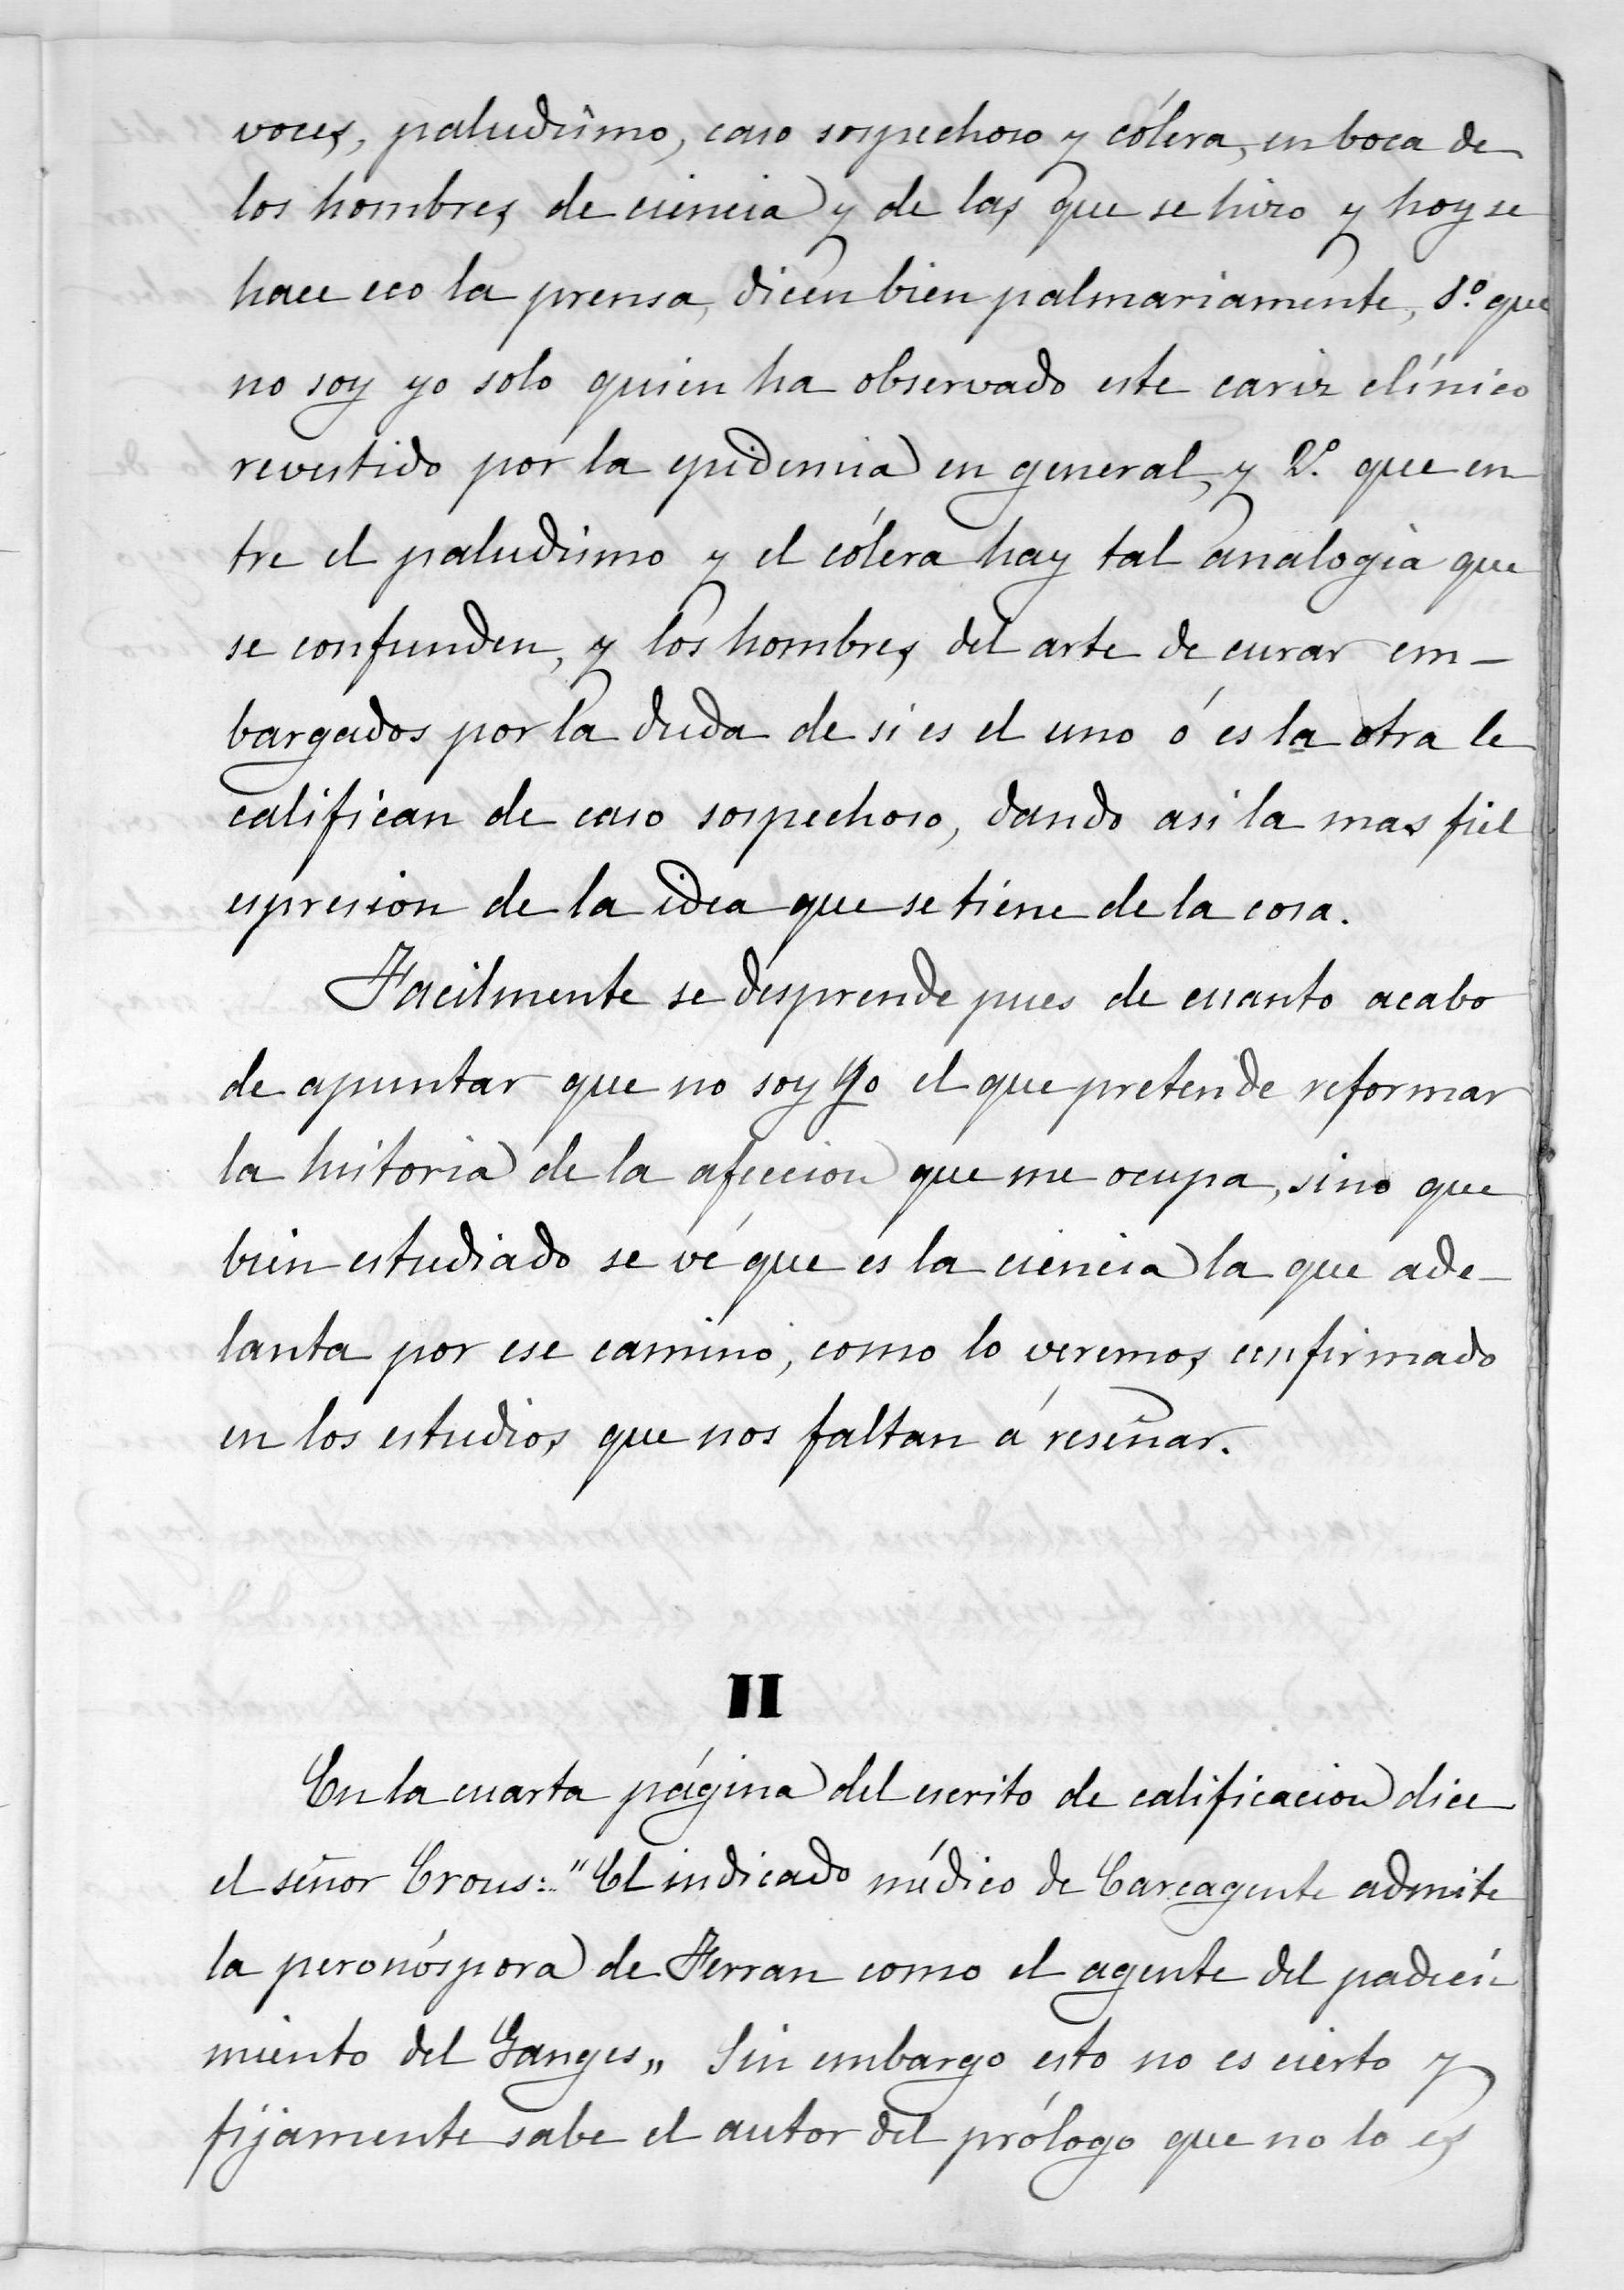 voces, paludismo, caso sospechoso y cólera, en boca de
los hombres de ciencia y de las que se hizo y hoy se
hace eco la prensa, dicen bien palmariamente, 1.º que
no soy yo solo quien ha observado este cariz clínico
revestido por la epidemia en general, y 2.º que en
tre el paludismo y el cólera hay tal analogia que
se confunden, y los hombres del arte de curar em-
bargados por la duda de si es el uno ó es la otra le
califican de caso sospechoso, dando asi la mas fiel
espresion de la idea que se tiene de la cosa.
Facilmente se desprende pues de cuanto acabo
de apuntar que no soy Yo el que pretende reformar
la historia de la afeccion que me ocupa, sino que
bien estudiado se vé que es la ciencia la que ade-
lanta por ese camino, como lo veremos confirmado
en los estudios que nos faltan á reseñar.
II
En la cuarta página del escrito de calificacion dice
el señor Crous: "El indicado médico de Carcagente admite
la peronóspora de Ferran como el agente del padeci
miento del Ganges„ Sin embargo esto no es cierto y
fijamente sabe el autor del prólogo que no lo es